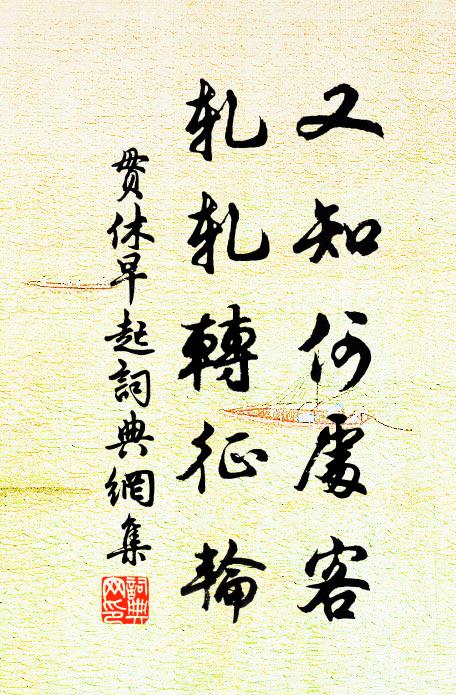 又知何處客
軋軋轉征輪
贯休早起詞典網集
詞典
网印